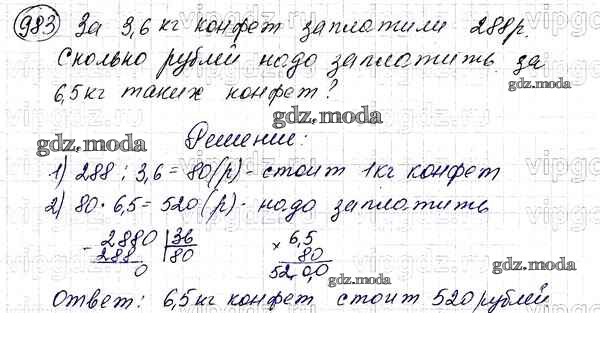 983 За 3,6 кг конфет заплатили 288 р.
Сколько рублей надо заплатить за
6,5 кг таких конфет?
gdz.moda
gdz.moda
gdz.moda
Решение:
1) 288 : 3,6 = 80 (р) - стоит 1 кг конфет
2) 80 · 6,5 = 520 (р) - надо заплатить
- 2880 | 36
288 | 80
0
× 6,5
80
520,0
gdz.moda
gdz.moda
Ответ: 6,5 кг конфет стоит 520 рублей
vipgdz.ru